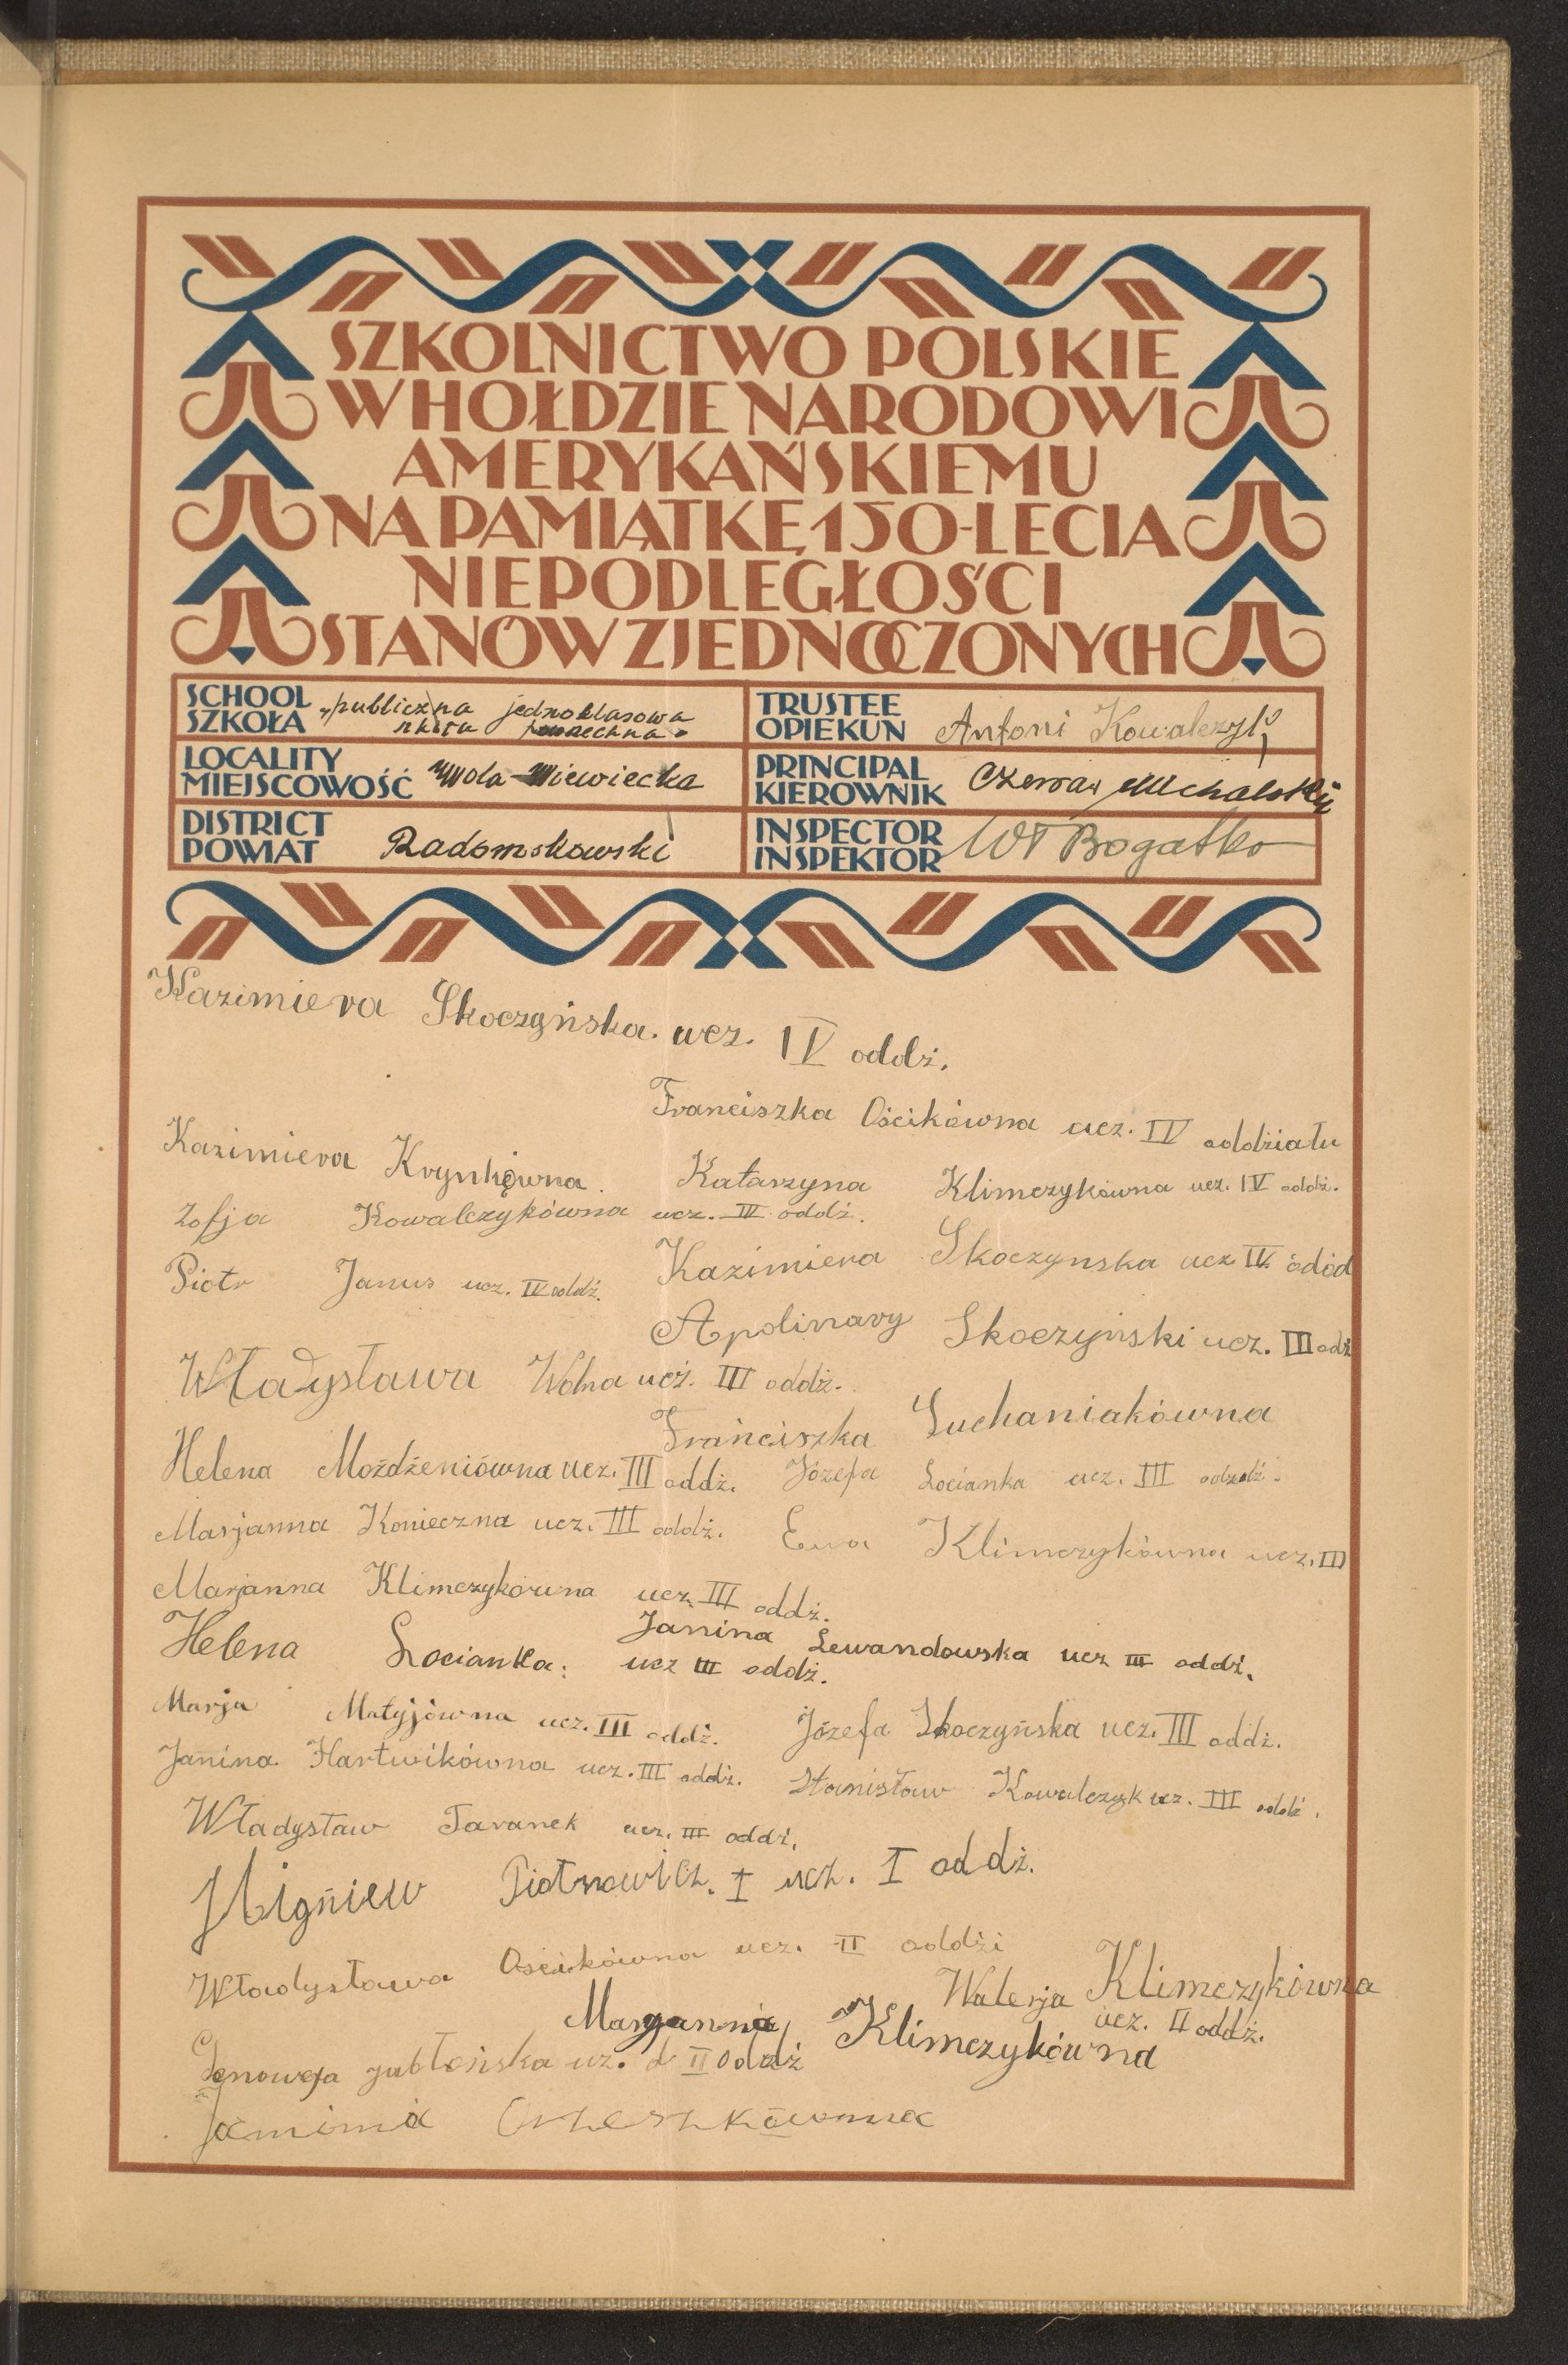 SZKOLNICTWO POLSKIE
W HOŁDZIE NARODOWI
AMERYKAŃSKIEMU
NA PAMIĄTKĘ 150-LECIA
NIEPODLEGŁOŚCI
STANÓW ZJEDNOCZONYCH
SCHOOL
SZKOŁA
„publiczna jednoklasowa
TRUSTEE
OPIEKUN
Antoni Kowalczyk
LOCALITY
MIEJSCOWOŚĆ
Wola-Wiewiecka
PRINCIPAL
KIEROWNIK
Michalski
DISTRICT
POWIAT
Radomskowski
INSPECTOR
INSPEKTOR
Wł Bogatko
Kazimiera Skoczyńska. ucz. IV oddź.
Franciszka Ościkówna ucz. IV oddziału
Kazimiera Krynkówna.
Katarzyna Klimczykówna ucz. IV oddź.
Zofja Kowalczykówna ucz. IV oddź.
Piotr Janus ucz. IV oddź.
Kazimiera Skoczynska ucz IV. ódód
Apolinary Skoczyński ucz. III odź
Władysława Wolna ucź. III oddż.
Franciszka Suchaniakówna
Helena Moździeniówna ucz. III oddż.
Józefa Łocianka ucz. III
Marjanna Konieczna ucz. III oddż.
Ewa Klimczykówna ucz. III
Marjanna Klimczykówna ucz. III oddż.
Janina Lewandowska ucz III oddź.
Helena Łocianka. ucz III oddż.
Marja Matyjówna ucz. III oddź.
Józefa Skoczyńska ucz. III oddż.
Janina Hartwikówna ucz. III oddż.
Stanisław Kowalczyk ucz. III oddź.
Władysław Taranek ucz. III oddź.
Zbigniew Piotrowicz. I ucz. I oddż.
Władysława Ościkówna ucz. II oddżi
Walerja Klimczykówna
ucz. II oddż.
Marjanna Klimczykówna
Genowefa Jabłońska uz. d II oddż
Janina Orzeszkówna